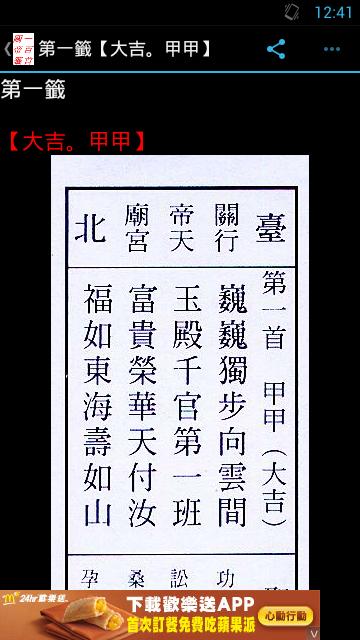 12:41
第一籤【大吉。甲甲】
第一籤
【大吉。甲甲】
臺
關行
帝天
廟宮
北
第一首 甲甲（大吉）
巍巍獨步向雲間
玉殿千官第一班
富貴榮華天付汝
福如東海壽如山
功
訟
桑
孕
24hr歡樂送
下載歡樂送APP
首次訂餐免費吃蘋果派
心動行動